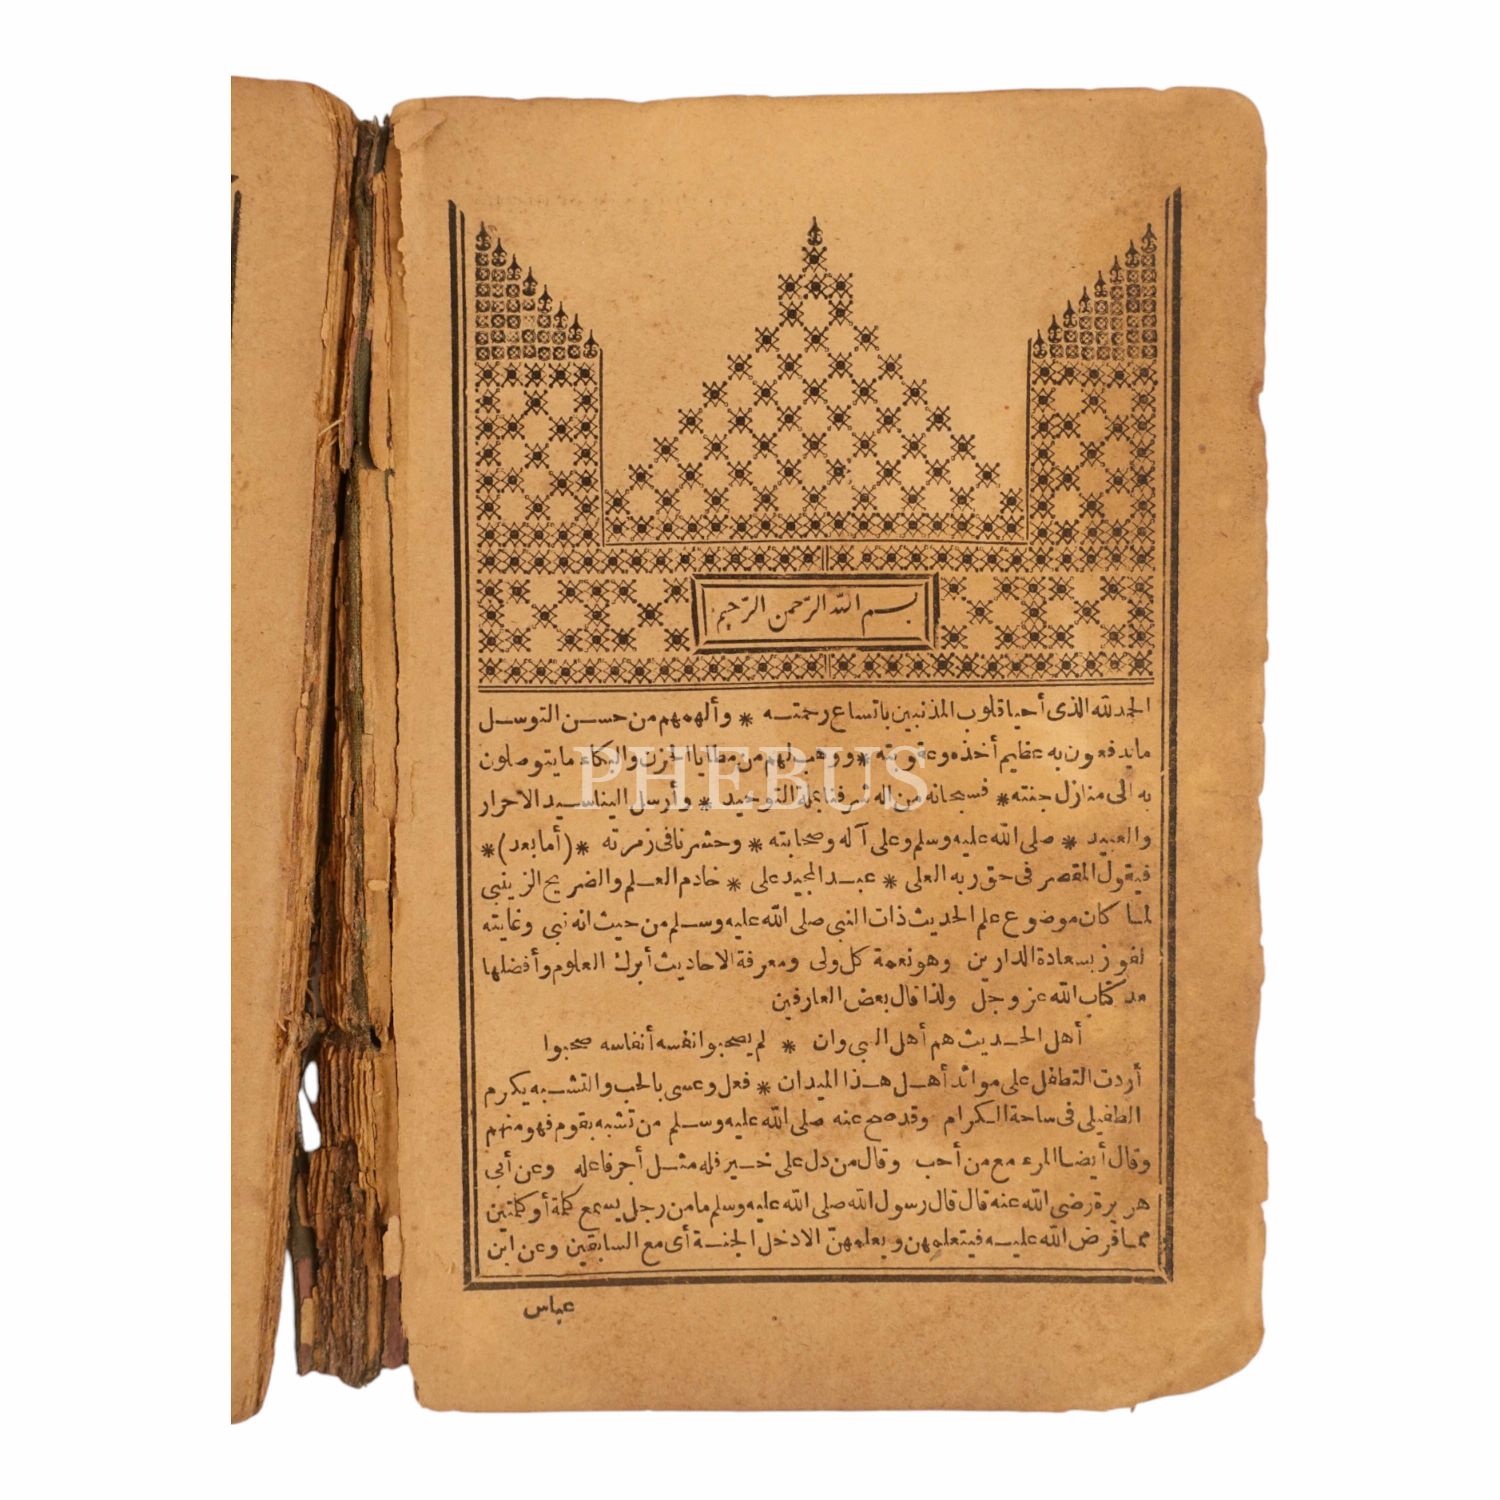 بسم الله الرحمن الرحيم
الحمد لله الذي أحيا قلوب المذنبين باتساع رحمته * وألهمهم من حسن التوسل
ما يدفعون به عظيم أخذه وعقوبته * ووهب لهم من مطايا الحزن والبكاء ما يتوصلون
به الى منازل جنته * فسبحانه من اله شرفنا بملة التوحيد * وأرسل الينا سيد الاحرار
والعبيد * صلى الله عليه وسلم وعلى آله وصحابته * وحشرنا في زمرته * (أما بعد) *
فيقول المقصر في حق ربه العلى * عبد المجيد على * خادم العلم والضريح الزينبي
لما كان موضوع علم الحديث ذات النبي صلى الله عليه وسلم من حيث انه نبي وغايته
لفوز بسعادة الدارين وهو نعمة كل ولى ومعرفة الاحاديث أبرك العلوم وأفضلها
عد كتاب الله عز وجل ولذا قال بعض العارفين
أهل الحديث هم أهل النبي وان * لم يصحبوا نفسه أنفاسه صحبوا
أردت التطفل على موائد أهل هذا الميدان * فعل وعسى بالحب والتشبه يكرم
الطفيلي في ساحة الكرام وقد صح عنه صلى الله عليه وسلم من تشبه بقوم فهو منهم
وقال أيضا المرء مع من أحب وقال من دل على خير فله مثل أجر فاعله وعن أبي
هريرة رضى الله عنه قال قال رسول الله صلى الله عليه وسلم ما من رجل يسمع كلمة أو كلمتين
مما فرض الله عليه فيتعلمهن ويعلمهن الا دخل الجنة أى مع السابقين وعن ابن
عباس
PHEBUS